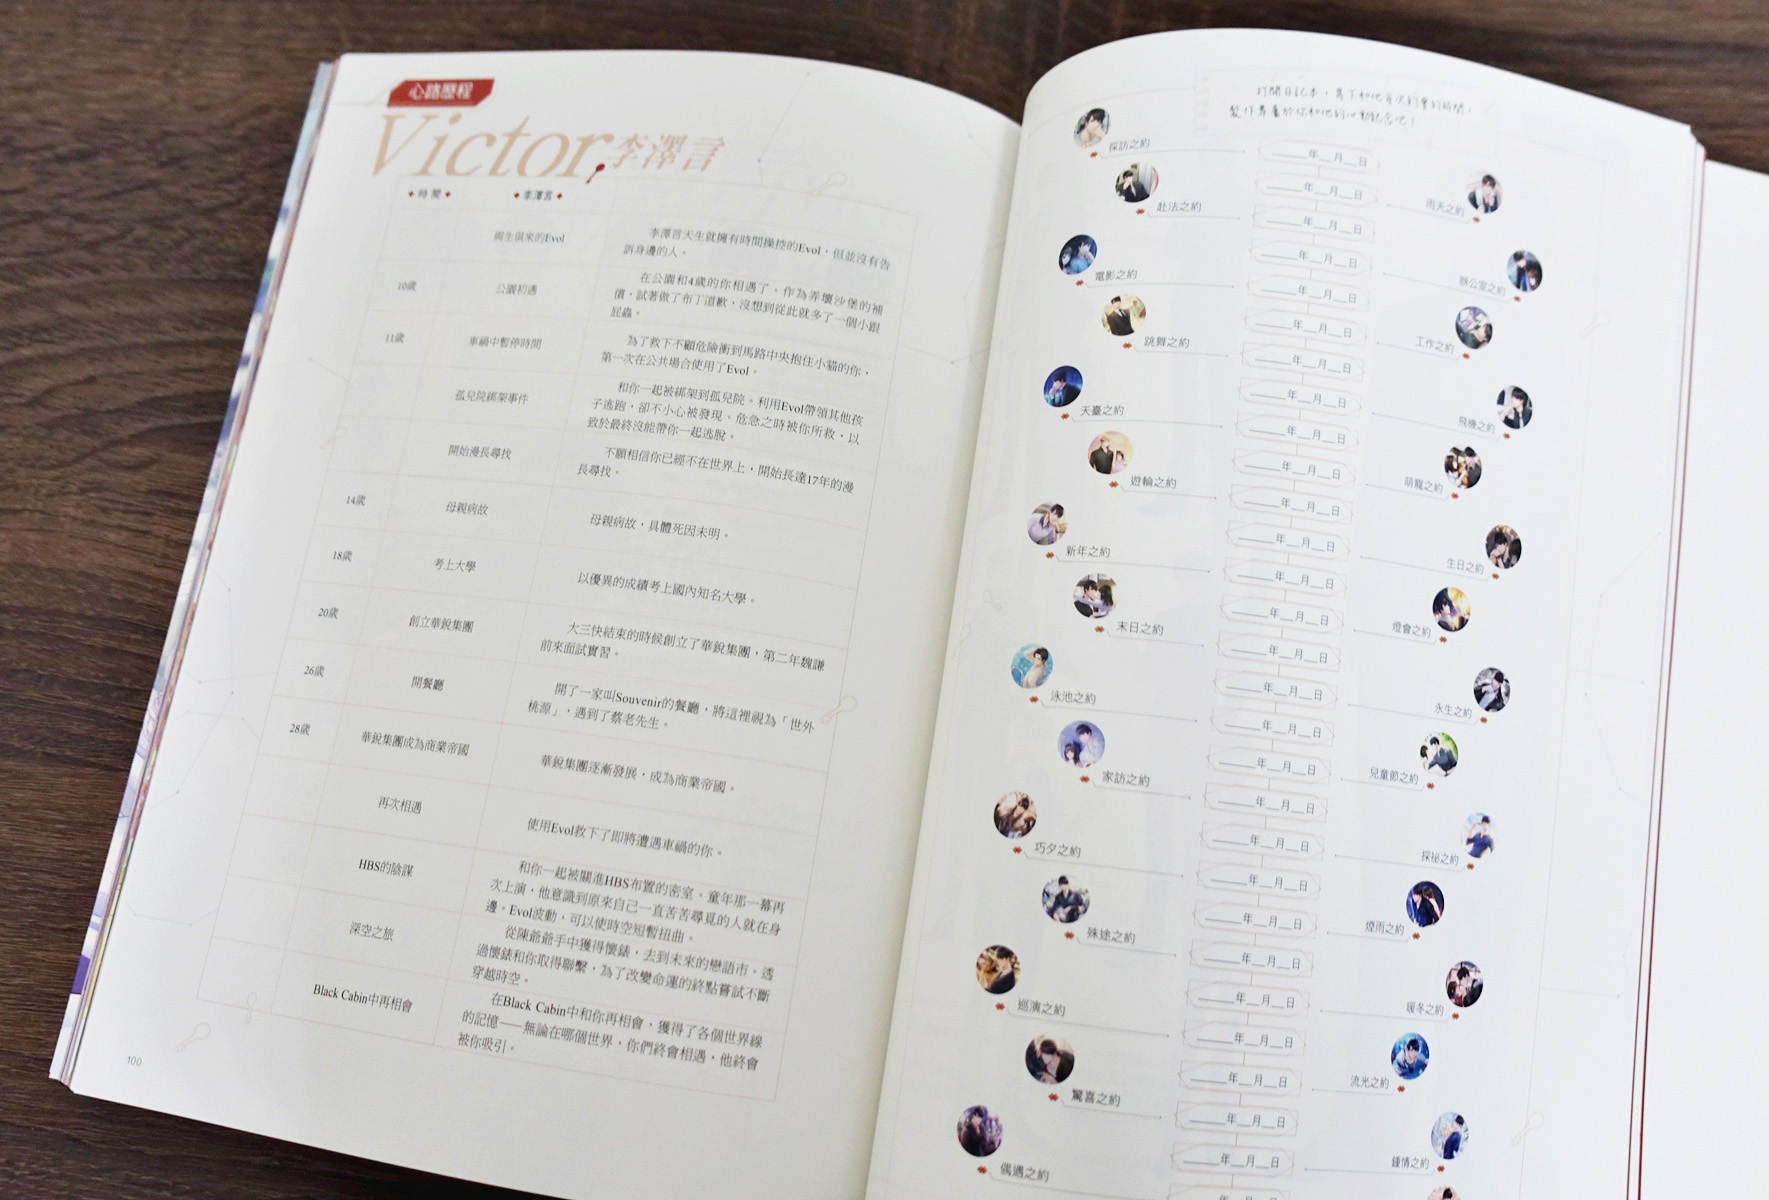 心路歷程
Victor 李澤言
時間 李澤言
與生俱來的Evol
李澤言天生就擁有時間操控的Evol，但並沒有告
訴身邊的人。
10歲 公園初遇
在公園和4歲的你相遇了。作為弄壞沙堡的補
償，試著做了布丁道歉，沒想到從此就多了一個小跟
屁蟲。
11歲 車禍中暫停時間
為了救下不顧危險衝到馬路中央抱住小貓的你，
第一次在公共場合使用了Evol。
孤兒院綁架事件
和你一起被綁架到孤兒院。利用Evol帶領其他孩
子逃跑，卻不小心被發現。危急之時被你所救，以
致於最終沒能帶你一起逃脫。
開始漫長尋找
不願相信你已經不在世界上，開始長達17年的漫
長尋找。
14歲 母親病故
母親病故，具體死因未明。
18歲 考上大學
以優異的成績考上國內知名大學。
20歲 創立華銳集團
大三快結束的時候創立了華銳集團，第二年魏謙
前來面試實習。
26歲 開餐廳
開了一家叫Souvenir的餐廳，將這裡視為「世外
桃源」，遇到了蔡老先生。
28歲 華銳集團成為商業帝國
華銳集團逐漸發展，成為商業帝國。
再次相遇
使用Evol救下了即將遭遇車禍的你。
HBS的陰謀
和你一起被關進HBS布置的密室。童年那一幕再
次上演，他意識到原來自己一直苦苦尋覓的人就在身
邊。Evol波動，可以使時空短暫扭曲。
深空之旅
從陳爺爺手中獲得懷錶，去到未來的戀語市。透
過懷錶和你取得聯繫，為了改變命運的終點嘗試不斷
穿越時空。
Black Cabin中再相會
在Black Cabin中和你再相會，獲得了各個世界線
的記憶——無論在哪個世界，你們終會相遇，他終會
被你吸引。
100
打開日記本，寫下和他每次約會的時間，
製作專屬於你和他的心動紀念吧！
採訪之約
___年__月__日
___年__月__日
赴法之約
雨天之約
___年__月__日
___年__月__日
電影之約
辦公室之約
___年__月__日
___年__月__日
跳舞之約
工作之約
___年__月__日
___年__月__日
天臺之約
飛機之約
___年__月__日
___年__月__日
遊輪之約
萌寵之約
___年__月__日
___年__月__日
新年之約
生日之約
___年__月__日
___年__月__日
末日之約
燈會之約
___年__月__日
___年__月__日
泳池之約
永生之約
___年__月__日
___年__月__日
家訪之約
兒童節之約
___年__月__日
___年__月__日
巧夕之約
探祕之約
___年__月__日
___年__月__日
殊途之約
煙雨之約
___年__月__日
___年__月__日
巡演之約
暖冬之約
___年__月__日
___年__月__日
驚喜之約
流光之約
___年__月__日
___年__月__日
偶遇之約
鍾情之約
___年__月__日